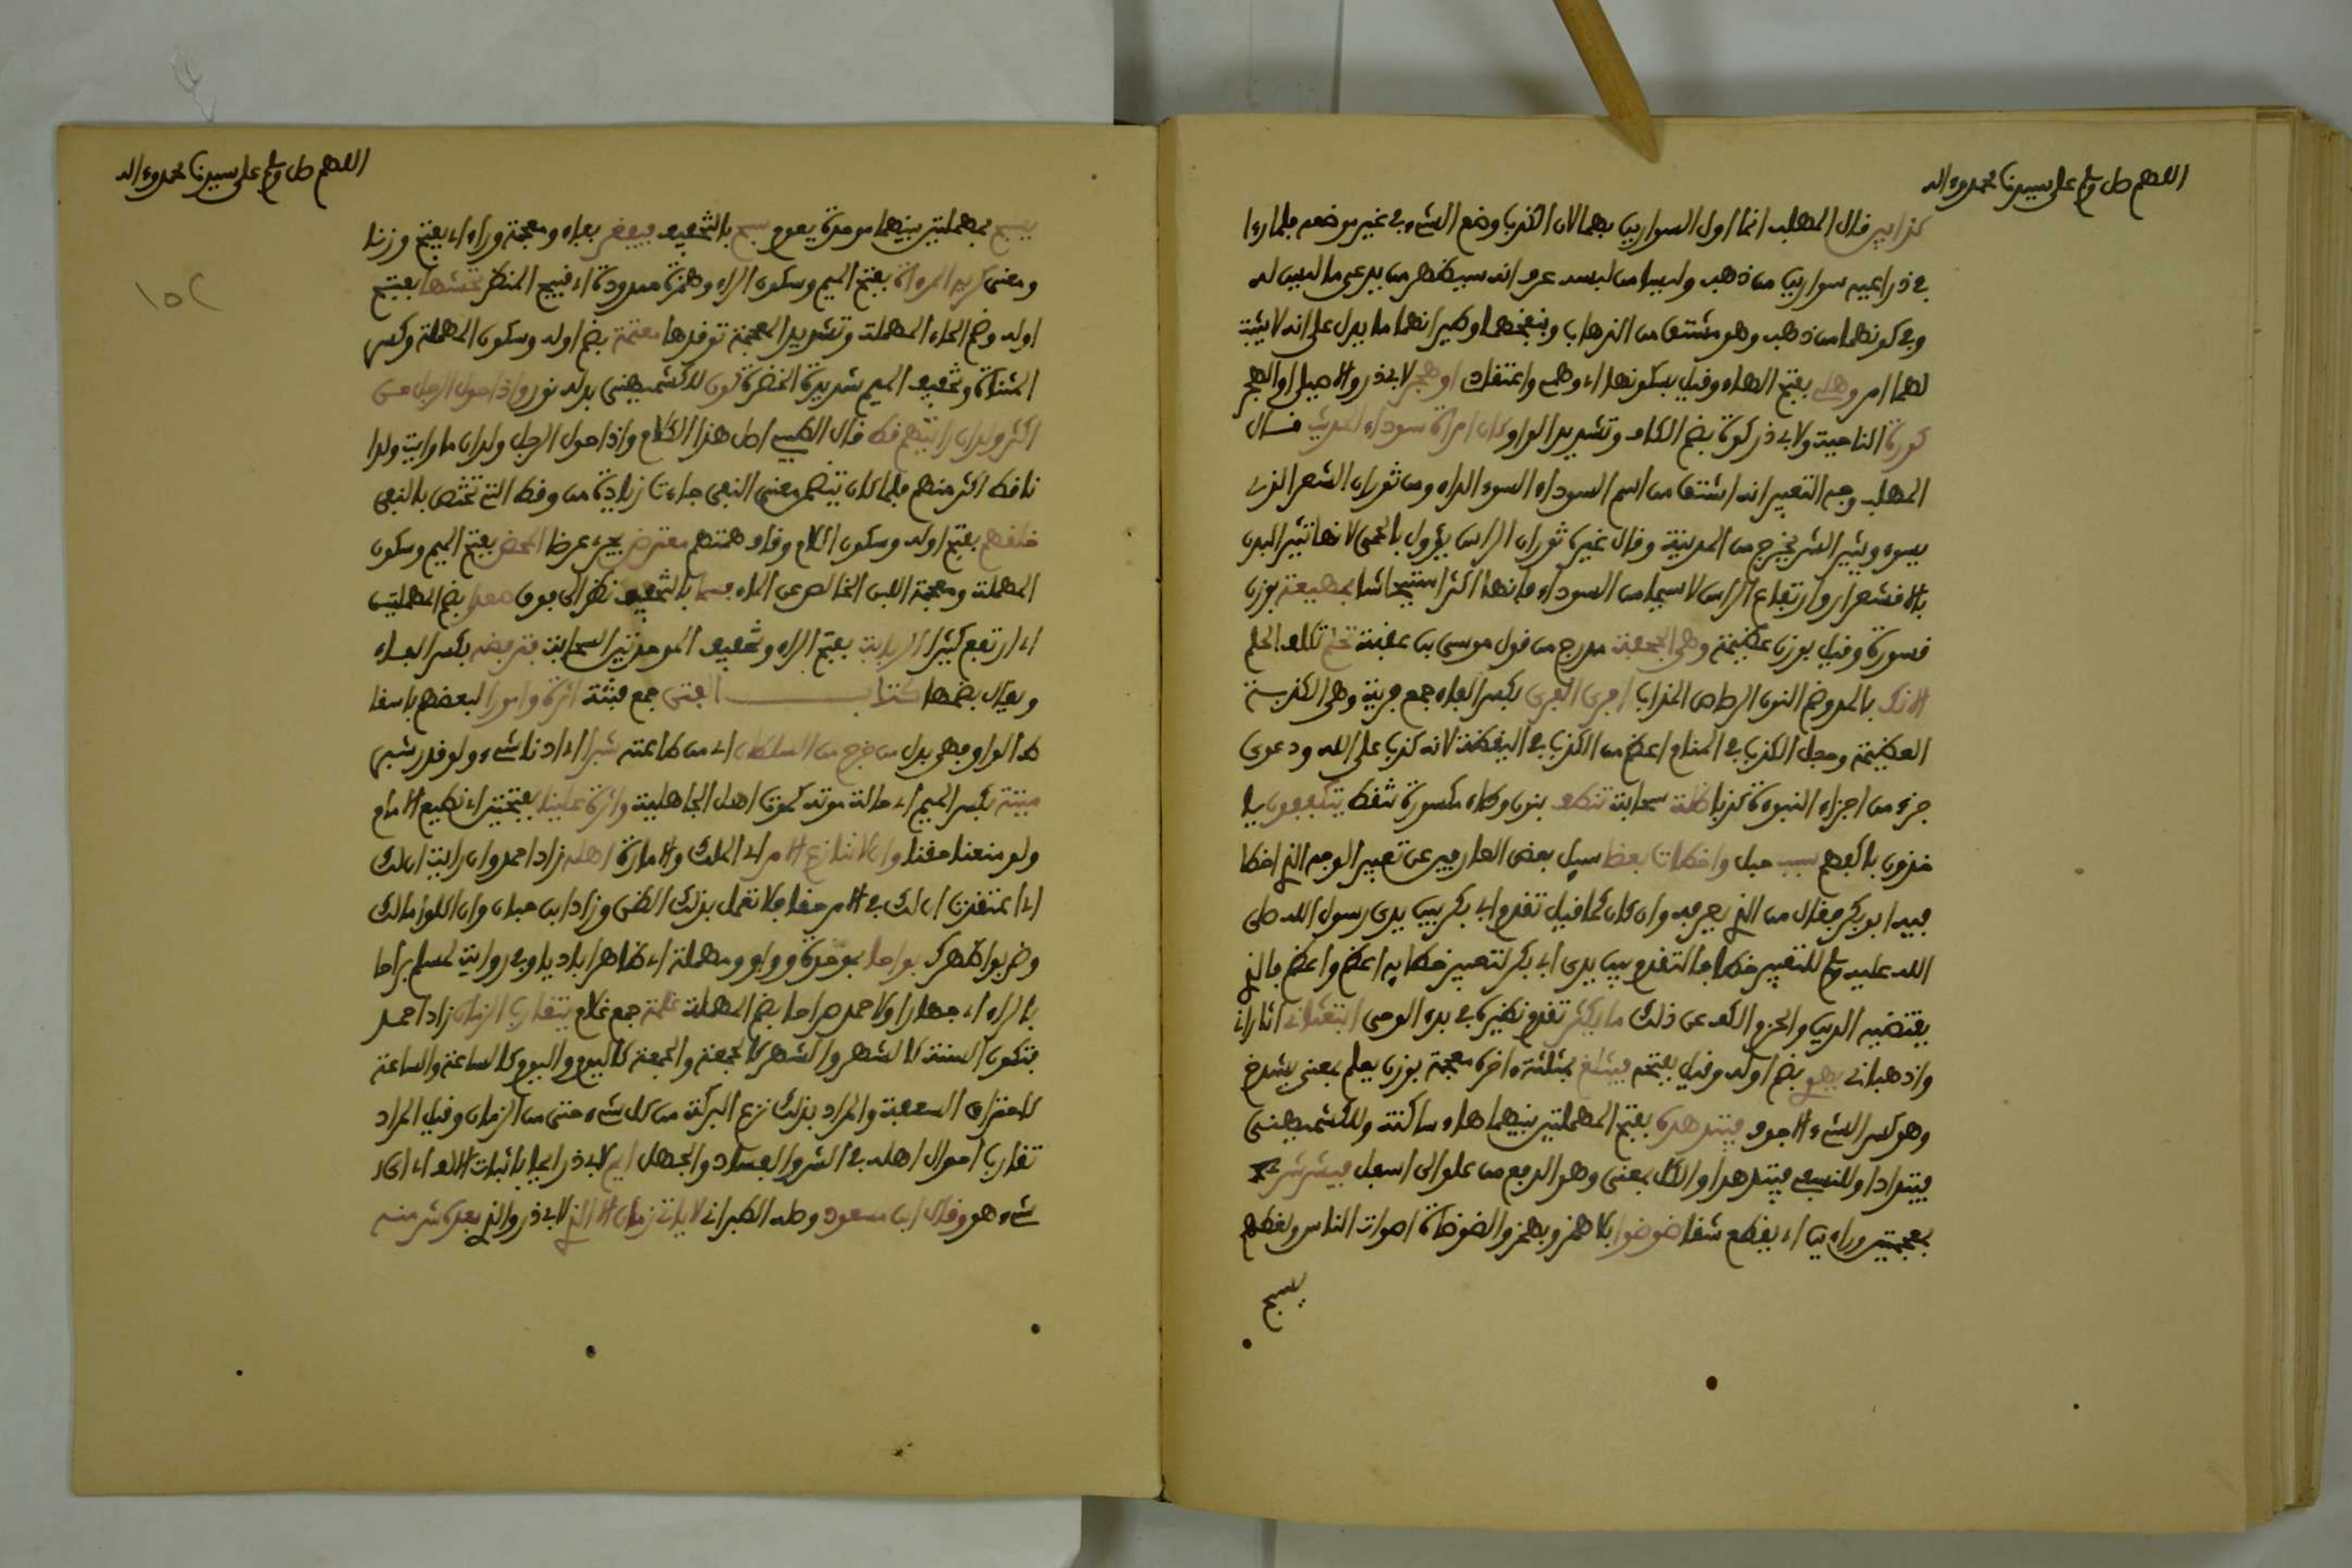 اللهم صل وسلم على سيدنا محمد وءاله
كذابين قال المهلب انما اول السوارين بهما لان الكذب وضع الشيء في غير موضعه فلما راءا
في ذراعيه سوارين من ذهب وليسا من لبسه عرف انه سيظهر من يدعي ما ليس له
وفي كونهما من ذهب وهو مشتق من الذهاب وبنفخهما وطيرانهما ما يدل على انه لا يثبت
لهما امر وهلي بفتح الهاء وقيل بسكونها اي وهمي واعتقادي او هجر لابي ذر والاصيلي او الهجر
كورة الناحية ولابي ذر كوة بضم الكاف وتشديد الواو كان امراة سوداء الحديث قال
المهلب وجه التعبير انه اشتق من اسم السوداء السوء الداء ومن ثوران الشعر الذي
يسوء ويثير الشر يخرج من المدينة وقال غيره ثوران الراس يؤول بالحمى لانها تثير البدن
بالاقشعرار وارتفاع الراس لاسيما من السوداء فانها اكثر استيحاشا بمهيعة بوزن
قسورة وقيل بوزن عظيمة وهي الجحفة مدرج من قول موسى بن عقبة تحلم تكلف الحلم
الانك بالمد وضم النون الرصاص المذاب افرى الفرى بكسر الفاء جمع فرية وهي الكذبة
العظيمة وجعل الكذب في المنام اعظم من الكذب في اليقظة لانه كذب على الله ودعوى
جزء من اجزاء النبوءة كذبا ظلة سحابة تنطف بنون وطاء مكسورة تقطر يتكففون يا
خذون باكفهم سبب حبل واخطات بعضا سيل بعض العارفين عن تعيين الوجه الذي اخطا
فيه ابو بكر فقال من الذي يعرفه وان كان كما قيل تقدم ابي بكر بين يدي رسول الله صلى
الله عليه وسلم للتعبير خطا فالتقدم بين يدي ابي بكر لتعيين خطايه اعظم واعظم فالذي
يقتضيه الدين والحزم الكف عن ذلك ما يكثر تقدم نظيره في بدء الوحي ابتعثاني اثاراني
واذهباني يهوي بضم اوله وقيل بفتحه فيثلغ بمثلثة اخره معجمة بوزن يعلم بمعنى يشدخ
وهو كسر الشيء الاجوف فيتدهده بفتح المهملتين بينهما هاء ساكنة وللكشميهني
فيتدادا وللنسفي فيتدهدا والكل بمعنى وهو الدفع من علو الى اسفل فيشرشر
بمعجمتين وراءين اي يقطع شقا ضوضوا بلا همز وبهمز والضوضاة اصوات الناس ولغطهم
يسبح
اللهم صل وسلم على سيدنا محمد وءاله
١٥٢
يسبح بمهملتين بينهما موحدة يعوم سبح بالتخفيف فيفغر بفاء ومعجمة وراء اي يفتح وزنا
ومعنى كريه المرءاة بفتح الميم وسكون الراء وهمزة ممدودة اي قبيح المنظر يحشها بفتح
اوله وضم الحاء المهملة وتشديد المعجمة توقدها معتمة بضم اوله وسكون المهملة وكسر
المثناة وتخفيف الميم شديدة الخضرة لون للكشميهني بدله نور واذا حول الرجل من
اكثر ولدان رايتهم قط قال الطيبي اصل هذا الكلام واذا حول الرجل ولدان ما رايت ولدا
نا قط اكثر منهم فلما كان يتضمن معنى النفي جازت زيادة من وقط التي تختص بالنفي
خلقهم بفتح اوله وسكون اللام وقاف هيئتهم معترض يجري عرضا المحض بفتح الميم وسكون
المهملة ومعجمة اللبن الخالص عن الماء فسما بالتخفيف نظر الى فوق صعدا بضم المهملتين
اي ارتفع كثيرا الربابة بفتح الراء وتخفيف الموحدتين السحابة فيرفضه بكسر الفاء
ويقال بضمها كتاب الفتن جمع فتنة اثرة وامورا لبعضهم باسقا
ط الواو فهي بدل من خرج من السلطان اي من طاعته شبرا اي ادنا شيء ولو قدر شبر
ميتة بكسر الميم اي حالة موته كموت اهل الجاهلية واثرة علينا بفتحتين اي نطيع الامام
ولو منعنا حقنا وان لا ننازع الامر اي الملك والامارة اهله زاد احمد وان رايت ان لك
اي اعتقدت ان لك في الامر حقا فلا تعمل بذلك الظن وزاد ابن حبان وان اكلوا مالك
وضربوا ظهرك بواحا بموحدة وواو ومهملة اي ظاهرا باديا وفي رواية لمسلم براحا
بالراء اي جهارا ولاحمد صراحا بضم المهملة غلمة جمع غلام يتقارب الزمان زاد احمد
فتكون السنة كالشهر والشهر كالجمعة والجمعة كاليوم واليوم كالساعة والساعة
كاحتراق السعفة والمراد بذلك نزع البركة من كل شيء حتى من الزمان وقيل المراد
تقارب احوال اهله في الشر والفساد والجهل ايم لابي ذر ايما باثبات الالف اي اي
شيء هو وقال ابن مسعود وصله الطبراني لا ياتي زمان الا الذي لابي ذر والذي بعده شر منه